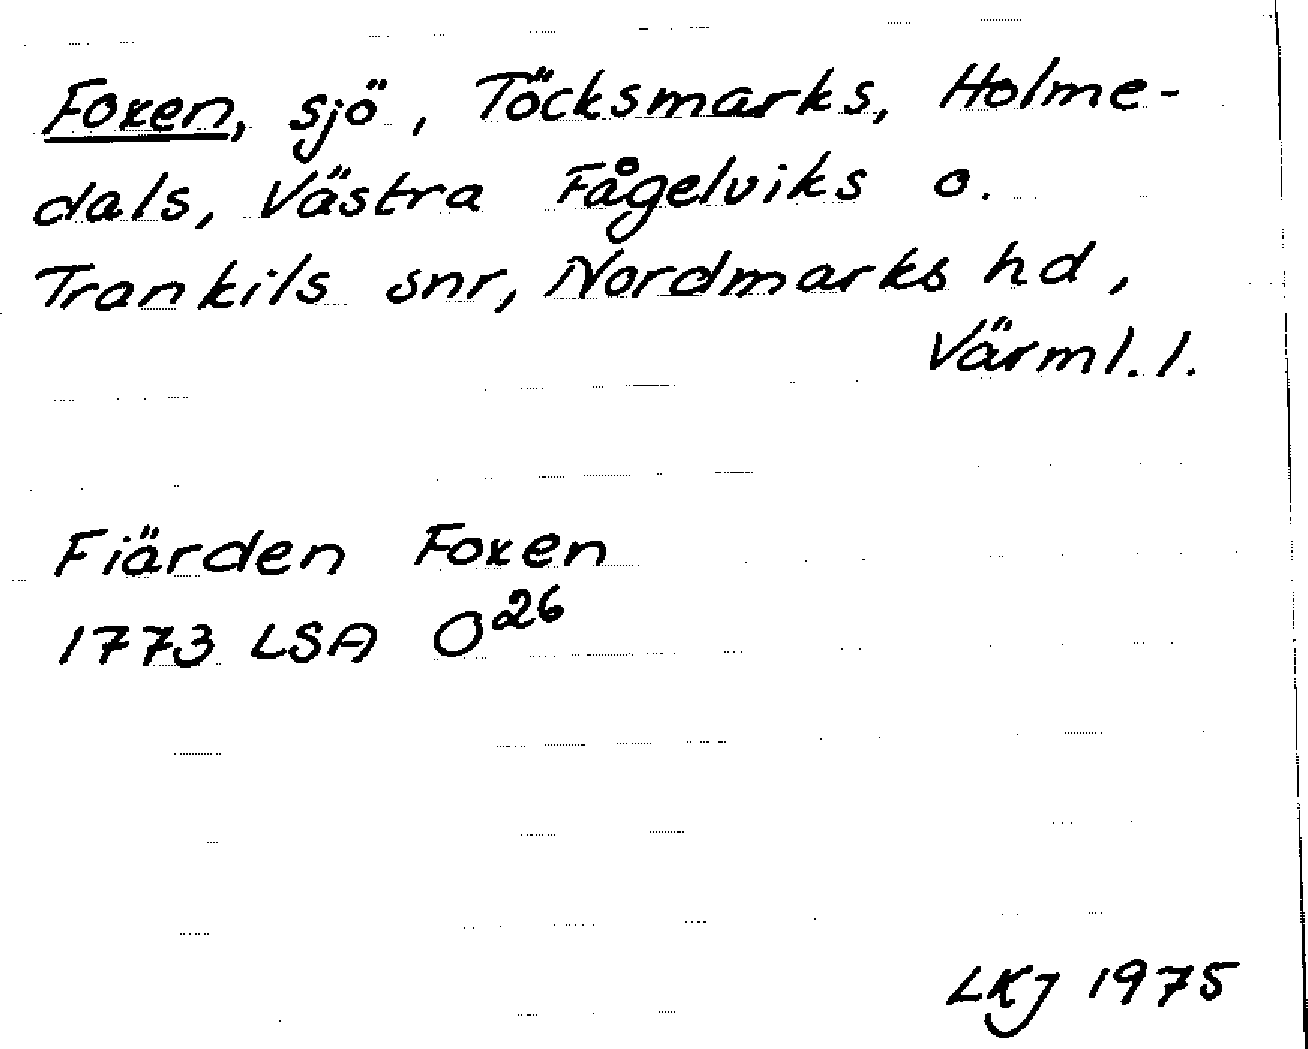 Foxen, sjö, Töcksmarks, Holme-
dals, Västra Fågelviks o.
Trankils snr, Nordmarks hd,
Värml. l.
Fiärden Foxen
1773 LSA O26
LKJ 1975